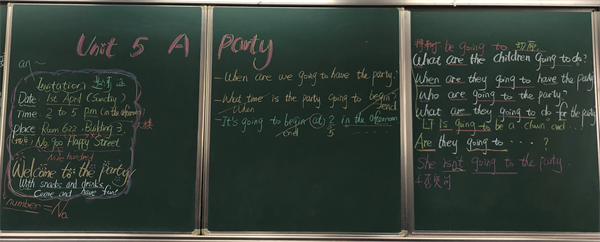 Unit 5 A Party
an~
Invitation 邀请函
Date 1st April (Sunday)
Time 2 to 5 p.m (in the afternoon)
Place Room 622 Building 3
No. 900 Happy Street
Nine hundred
Welcome to the party
With snacks and drinks
Come and have fun!
number = No.
- When are we going to have the party?
- What time is the party going to begin?
When
end
- It's going to begin (at) 2 in the afternoon
end
5
be going to
What are the children going to do?
When are they going to have the party
Who are going to the party.
What are they going to do for the party
LT Is going to be a clown and...
Are they going to ····?
She isn't going to the party.